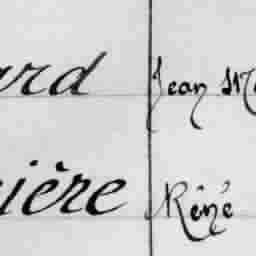 ard Jean M
ière Réné